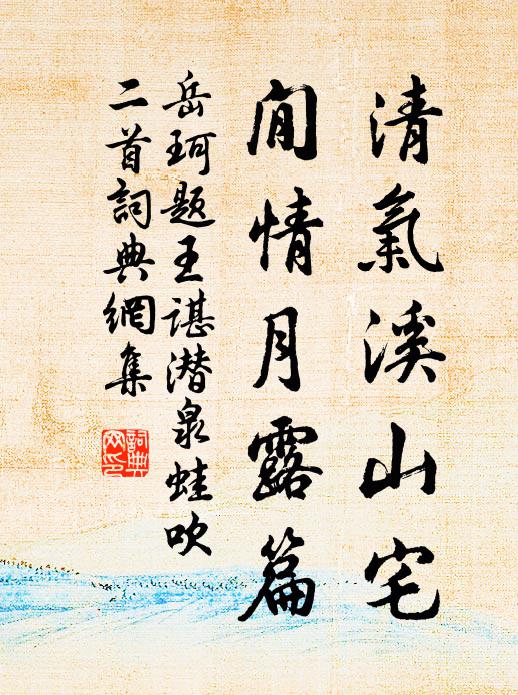 清氣溪山宅
閒情月露篇
岳珂題王諶潛泉蛙吹
二首詞典網集
詞典
网印